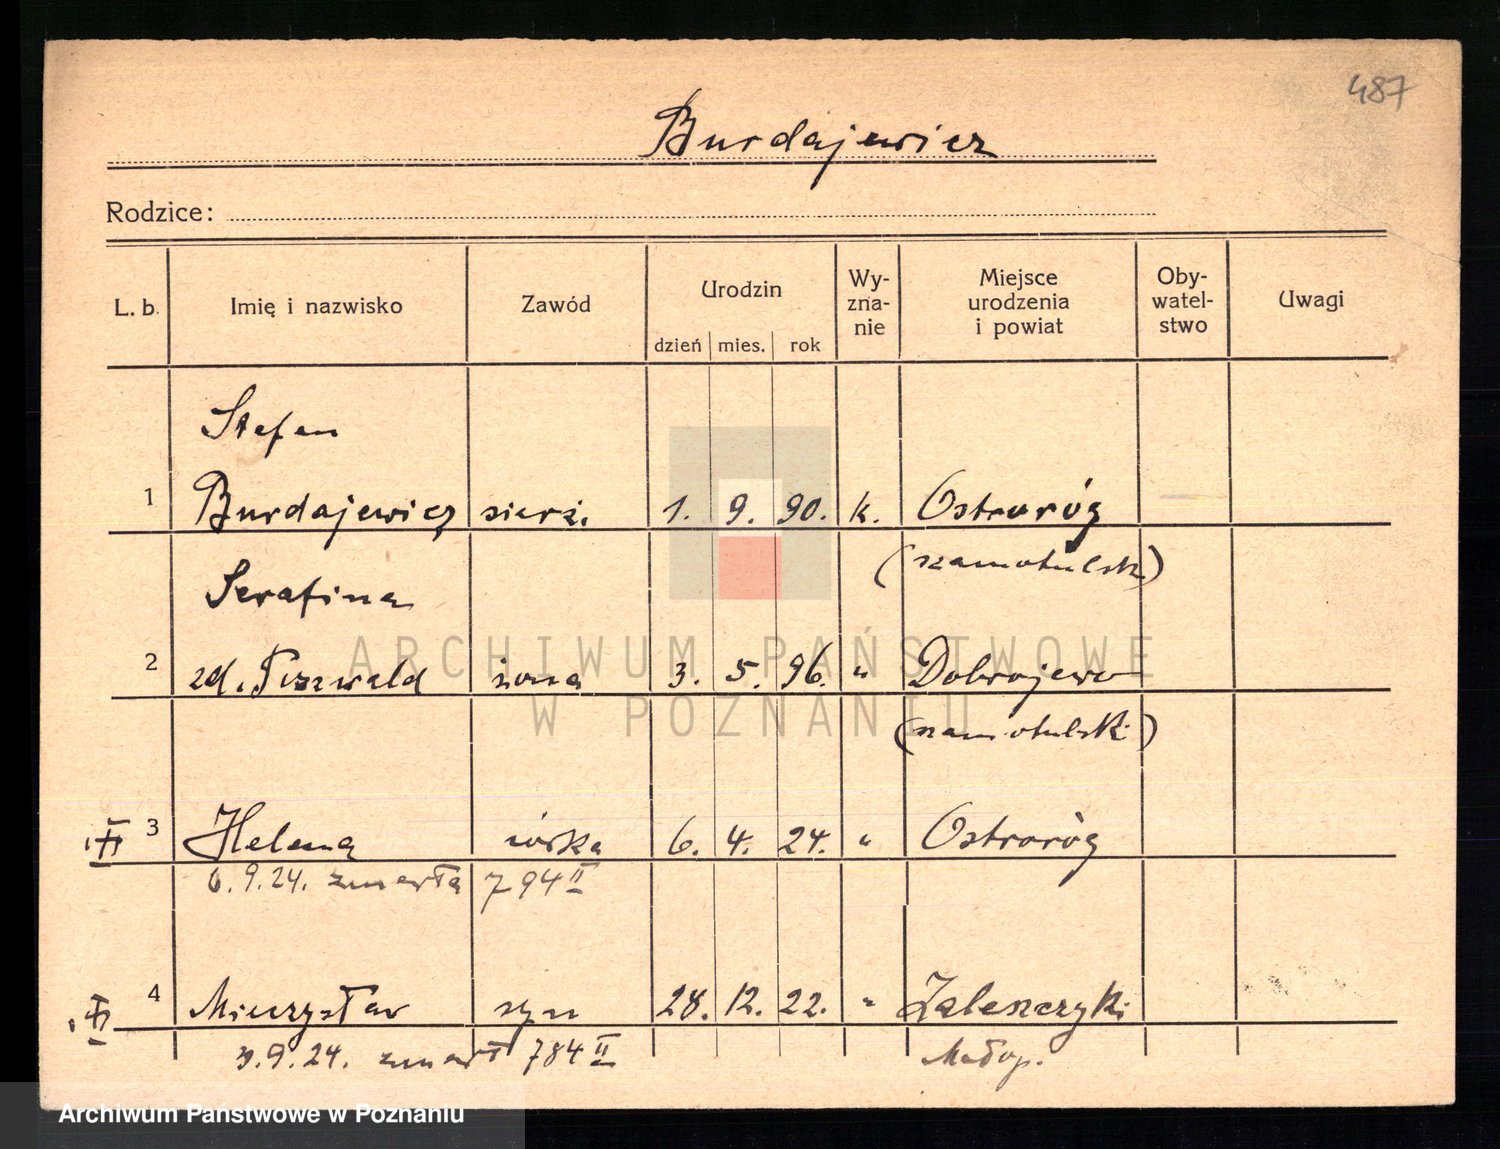 487
Burdajewicz
Rodzice:
L. b. Imię i nazwisko Zawód Urodzin dzień mies. rok Wy-zna-nie Miejsce urodzenia i powiat Oby-watel-stwo Uwagi
Stefan
1 Burdajewicz sierż. 1. 9. 90. k. Ostroróg
(szamotulsk.)
Serafina
2 zd. żona 3. 5. 96. " Dobrojewo
(szamotulski)
3 Helena córka 6. 4. 24. " Ostroróg
6.9.24. zmarła 794 II
4 Mieczysław syn 28. 12. 22. " Zaleszczyki
9.24. zmarł 784 II Małop.
ARCHIWUM PAŃSTWOWE
W POZNANIU
Archiwum Państwowe w Poznaniu